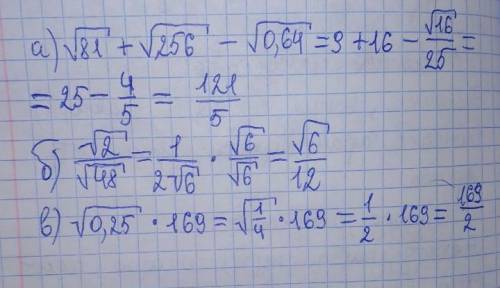 а) √81 + √256 - √0,64 = 9 + 16 - √16/25 =
= 25 - 4/5 = 121/5
б) √2/√48 = 1/2√6 · √6/√6 = √6/12
в) √0,25 · 169 = √1/4 · 169 = 1/2 · 169 = 169/2